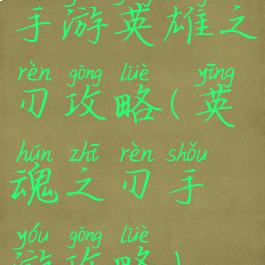 手游英雄之
rèn gōng lüè yīng
刃攻略(英
hún zhī rèn shǒu
魂之刃手
yóu gōng lüè
游攻略)